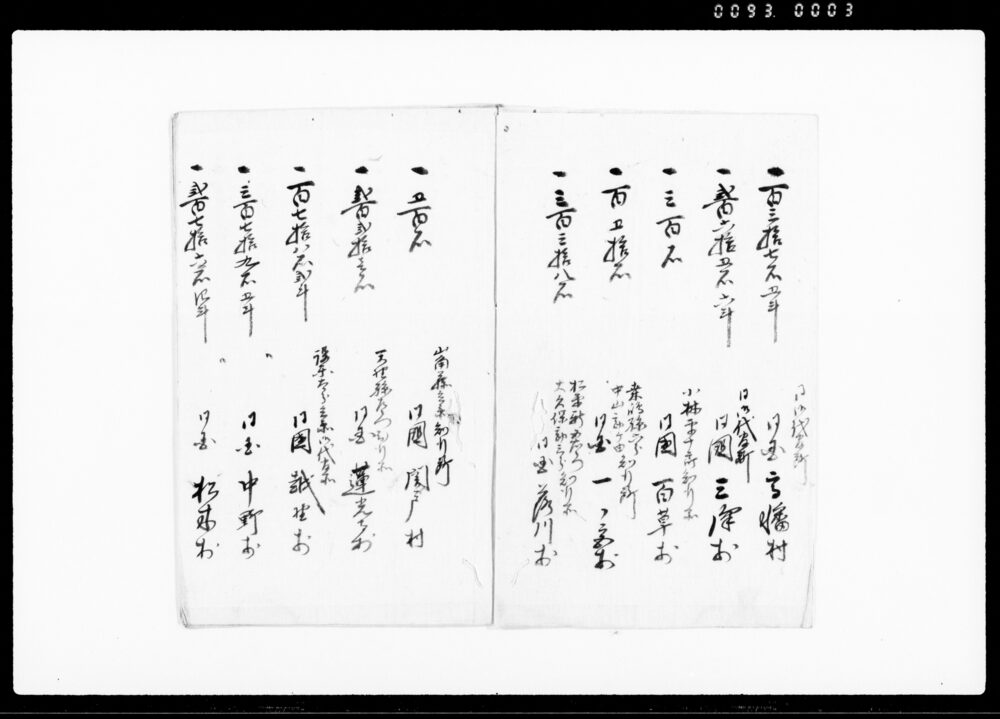 0093 0003
一百三拾七石五斗
同御代官所
同国 高幡村
一弐百六拾五石六斗
同御代官所
同国 三沢村
一三百石
小林 知行所
同国 百草村
一百五拾石
中山 知行所
同国 一ノ宮村
一三百三拾八石
大久保 知行所
同国 落川村
一五百石
山岡 知行所
同国 関戸村
一弐百弐拾壱石
天野孫左衛門知行所
同国 蓮光寺村
一百七拾八石弐斗
御代官所
同国 越野村
一三百七拾九石五斗
〃 〃
同国 中野村
一弐百七拾六石四斗
同国 松木村